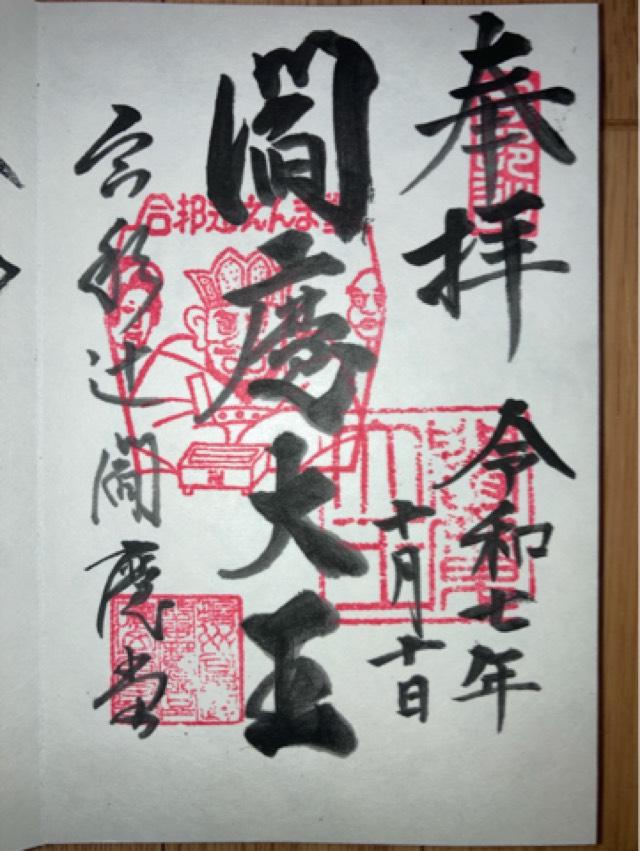 奉拝
令和七年
十月十日
閻魔大王
合邦辻えんま堂
合邦辻閻魔堂